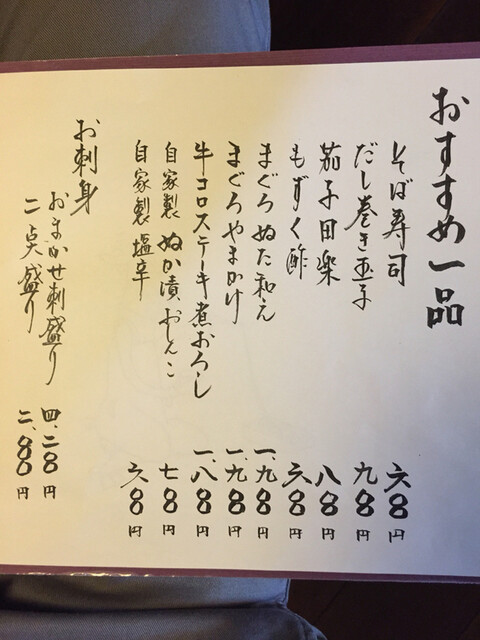 おすすめ一品
そば寿司 六〇〇円
だし巻き玉子 九〇〇円
茄子田楽 八〇〇円
もずく酢 六〇〇円
まぐろぬた和え 一、九〇〇円
まぐろやまかけ 一、九〇〇円
牛コロステーキ煮おろし 一、八〇〇円
自家製ぬか漬おしんこ 七〇〇円
自家製塩辛 六〇〇円
お刺身
おまかせ刺盛り 四、二〇〇円
二点盛り 二、八〇〇円